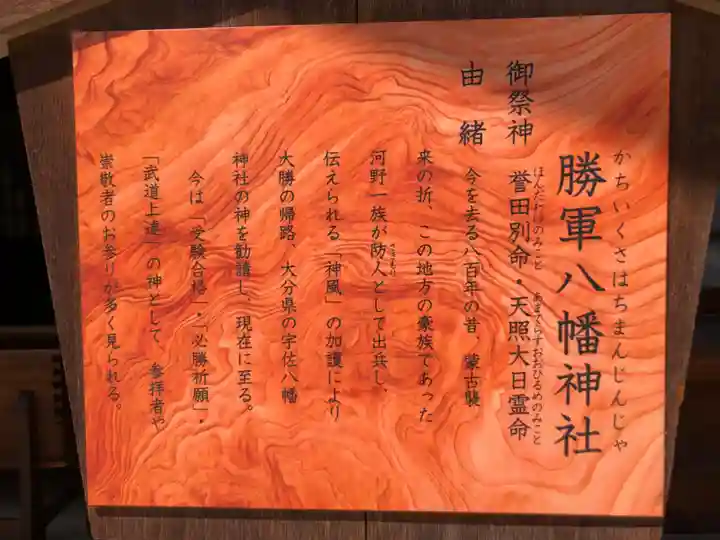 かちいくさはちまんじんじゃ
勝軍八幡神社
ほんだわけのみこと　あまてらすおおひるめのみこと
御祭神　誉田別命・天照大日霊命
由緒
今を去る八百年の昔、蒙古襲
来の折、この地方の豪族であった
さきもり
河野一族が防人として出兵し、
伝えられる「神風」の加護により
大勝の帰路、大分県の宇佐八幡
神社の神を勧請し、現在に至る。
今は「受験合格」・「必勝祈願」・
「武道上達」の神として、参拝者や
崇敬者のお参りが多く見られる。